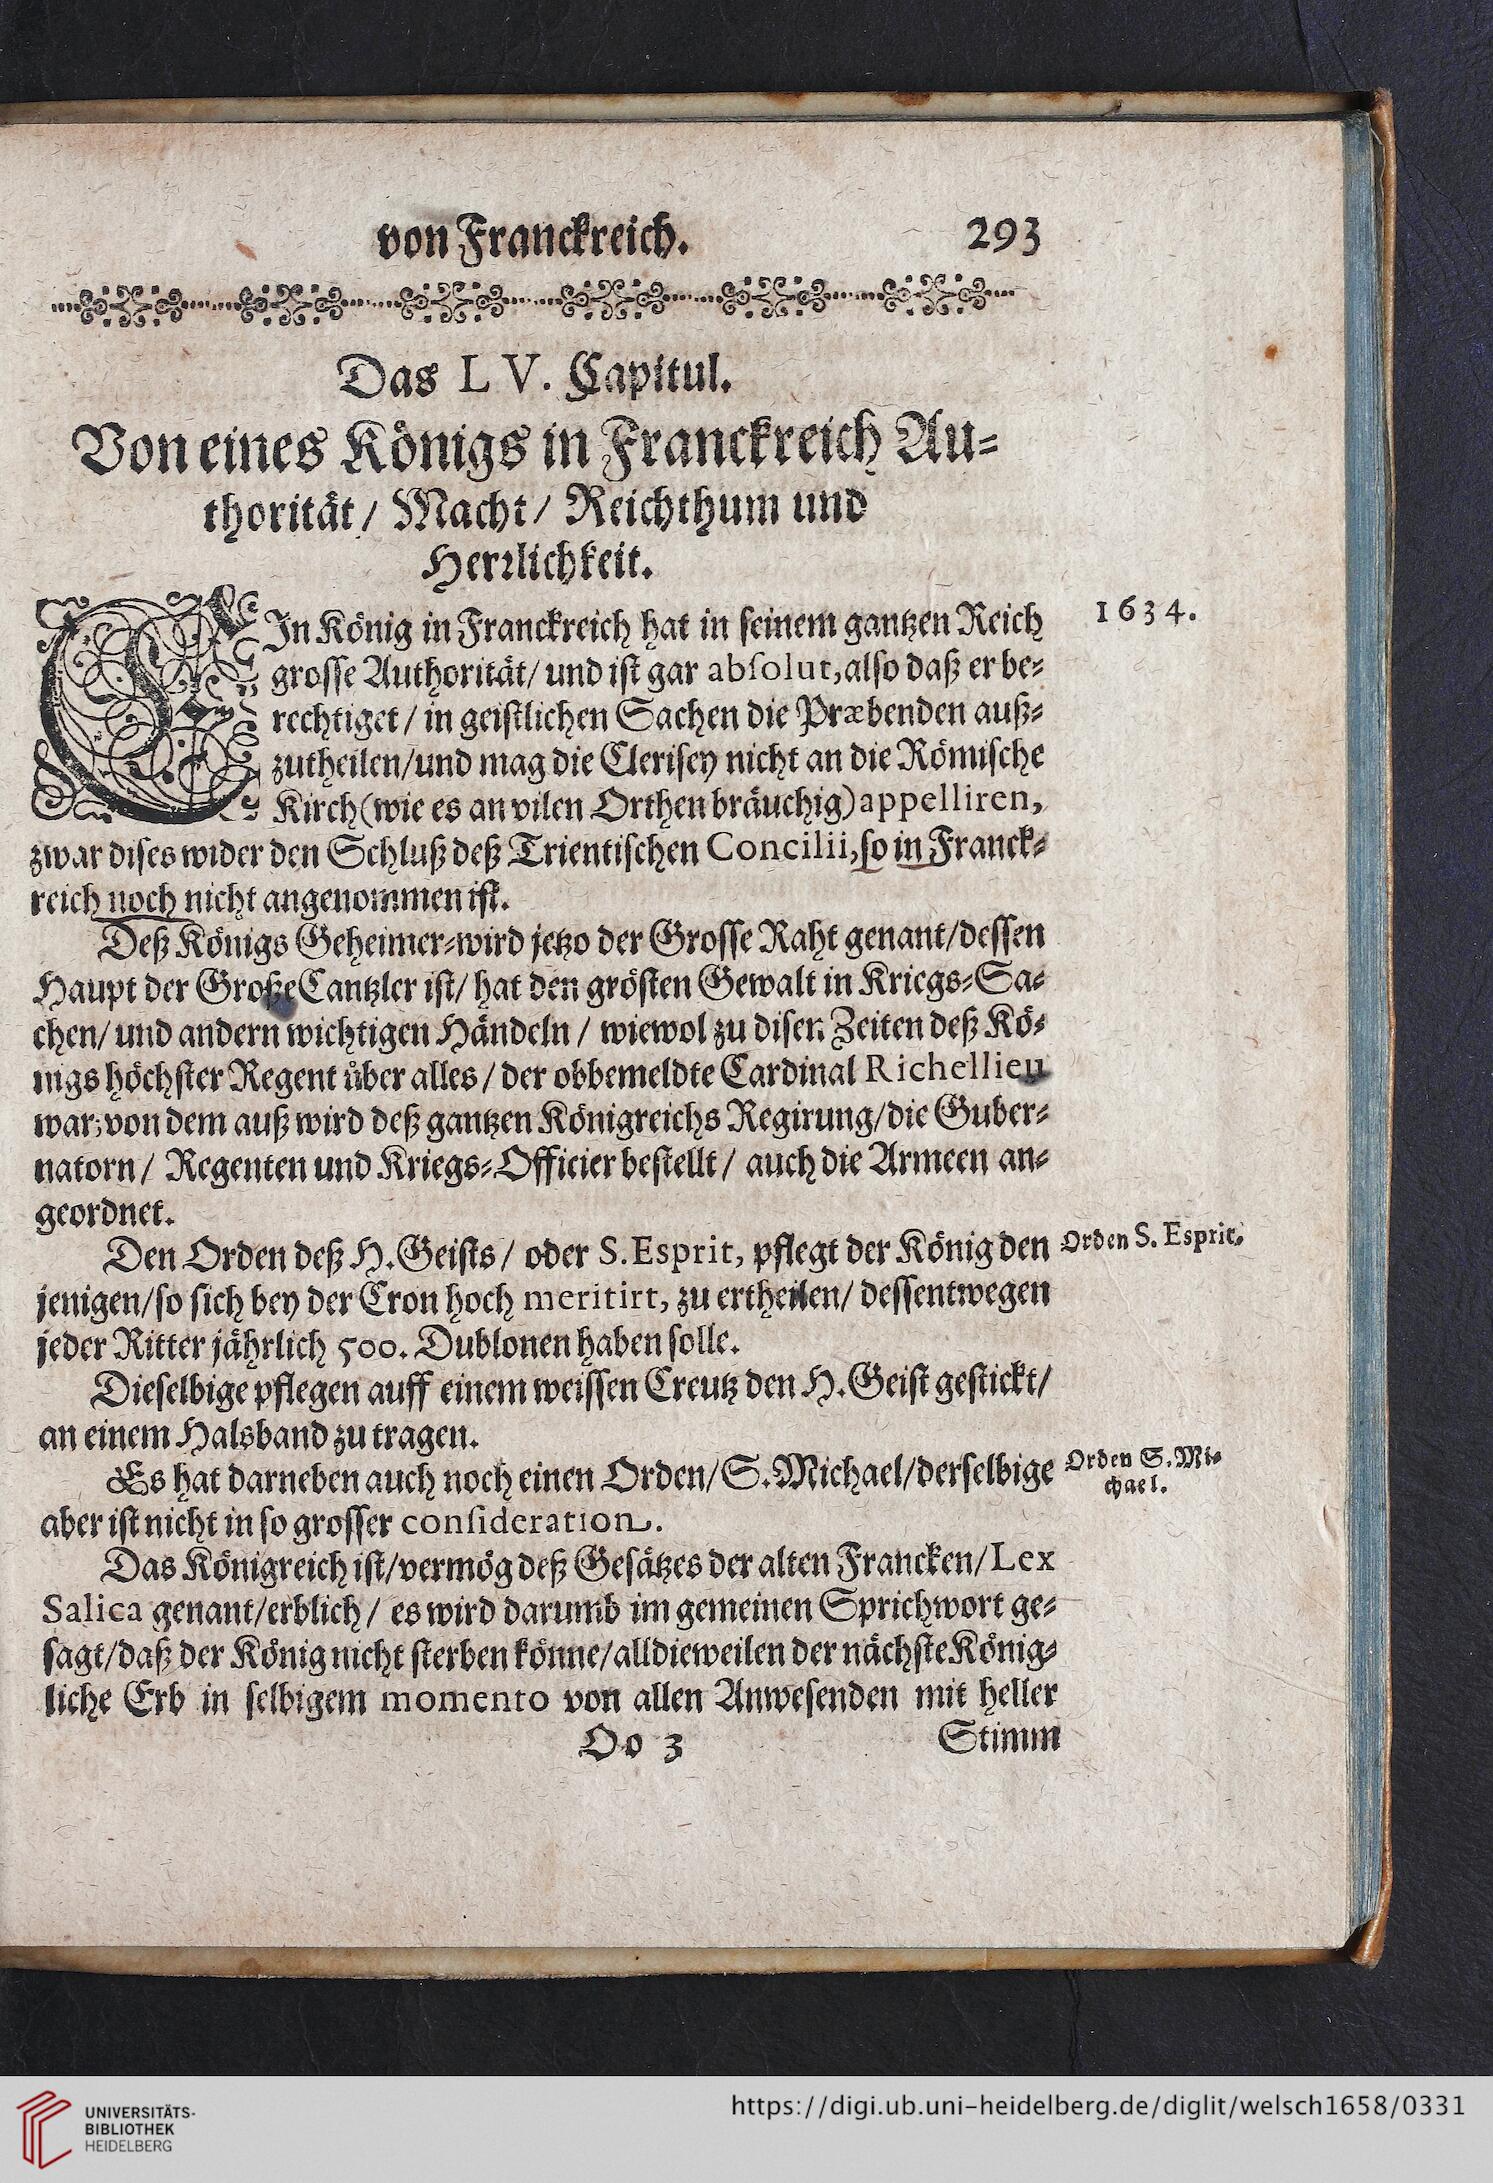 von Franckreich. 293
Das LV. Capitul.
Von eines Königs in Franckreich Au-
thorität/ Macht/ Reichthum und
Herrlichkeit.
EIn König in Franckreich hat in seinem gantzen Reich
1634.
grosse Authorität/ und ist gar absolut, also daß er be-
rechtiget/ in geistlichen Sachen die Præbenden auß-
zutheilen/ und mag die Clerisey nicht an die Römische
Kirch (wie es an vilen Orthen bräuchig) appelliren,
zwar dises wider den Schluß deß Trientischen Concilii, so in Franck-
reich noch nicht angenommen ist.
Deß Königs Geheimer-wird jetzo der Grosse Raht genant/ dessen
Haupt der Große Cantzler ist/ hat den grösten Gewalt in Kriegs-Sa-
chen/ und andern wichtigen Händeln/ wiewol zu disen Zeiten deß Kö-
nigs höchster Regent über alles/ der obbemeldte Cardinal Richellieu
war; von dem auß wird deß gantzen Königreichs Regirung/ die Guber-
natorn/ Regenten und Kriegs-Officier bestellt/ auch die Armeen an-
geordnet.
Den Orden deß H. Geists/ oder S. Esprit, pflegt der König den
Orden S. Esprit.
jenigen/ so sich bey der Cron hoch meritirt, zu ertheilen/ dessentwegen
jeder Ritter jährlich 500. Dublonen haben solle.
Dieselbige pflegen auff einem weissen Creutz den H. Geist gestickt/
an einem Halsband zu tragen.
Es hat darneben auch noch einen Orden/ S. Michael/ derselbige
Orden S. Mi-
chael.
aber ist nicht in so grosser consideration.
Das Königreich ist/ vermög deß Gesätzes der alten Francken/ Lex
Salica genant/ erblich/ es wird darumb im gemeinen Sprichwort ge-
sagt/ daß der König nicht sterben könne/ alldieweilen der nächste König-
liche Erb in selbigem momento von allen Anwesenden mit heller
Oo 3 Stimm
UNIVERSITÄTS-
BIBLIOTHEK
HEIDELBERG
https://digi.ub.uni-heidelberg.de/diglit/welsch1658/0331